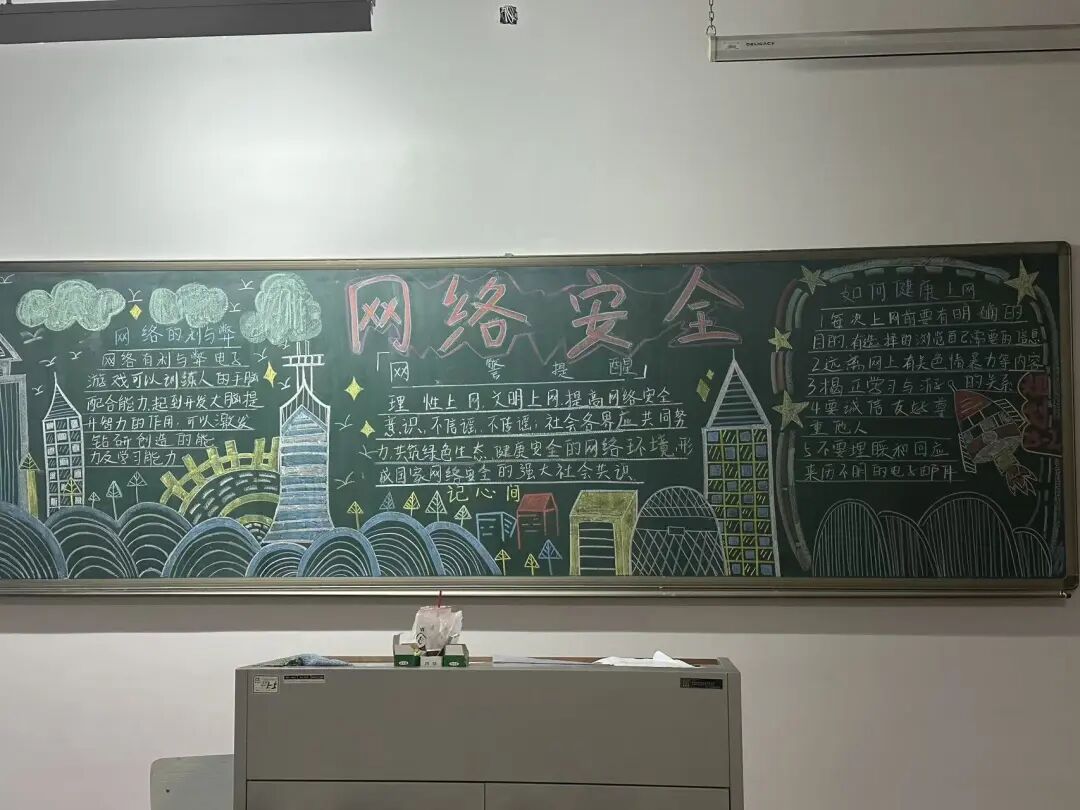 网络安全
网络的利与弊
网络有利与弊电子
游戏可以训练人的手脑
配合能力,起到开发大脑提
升智力的作用,可以激发
钻研创造的能
力及学习能力
「网警提醒」
理性上网,文明上网,提高网络安全
意识、不信谣、不传谣;社会各界应共同努
力共筑绿色生态,健康安全的网络环境,形
成国家网络安全的强大社会共识。
记心间
如何健康上网
1每次上网前要有明确的
目的,有选择的浏览自己需要的信息
2远离网上有关色情暴力等内容
3摆正学习与游的关系
4要诚信友好尊
重他人
5不要理睬和回应
来历不明的电子邮件
DELIGACY